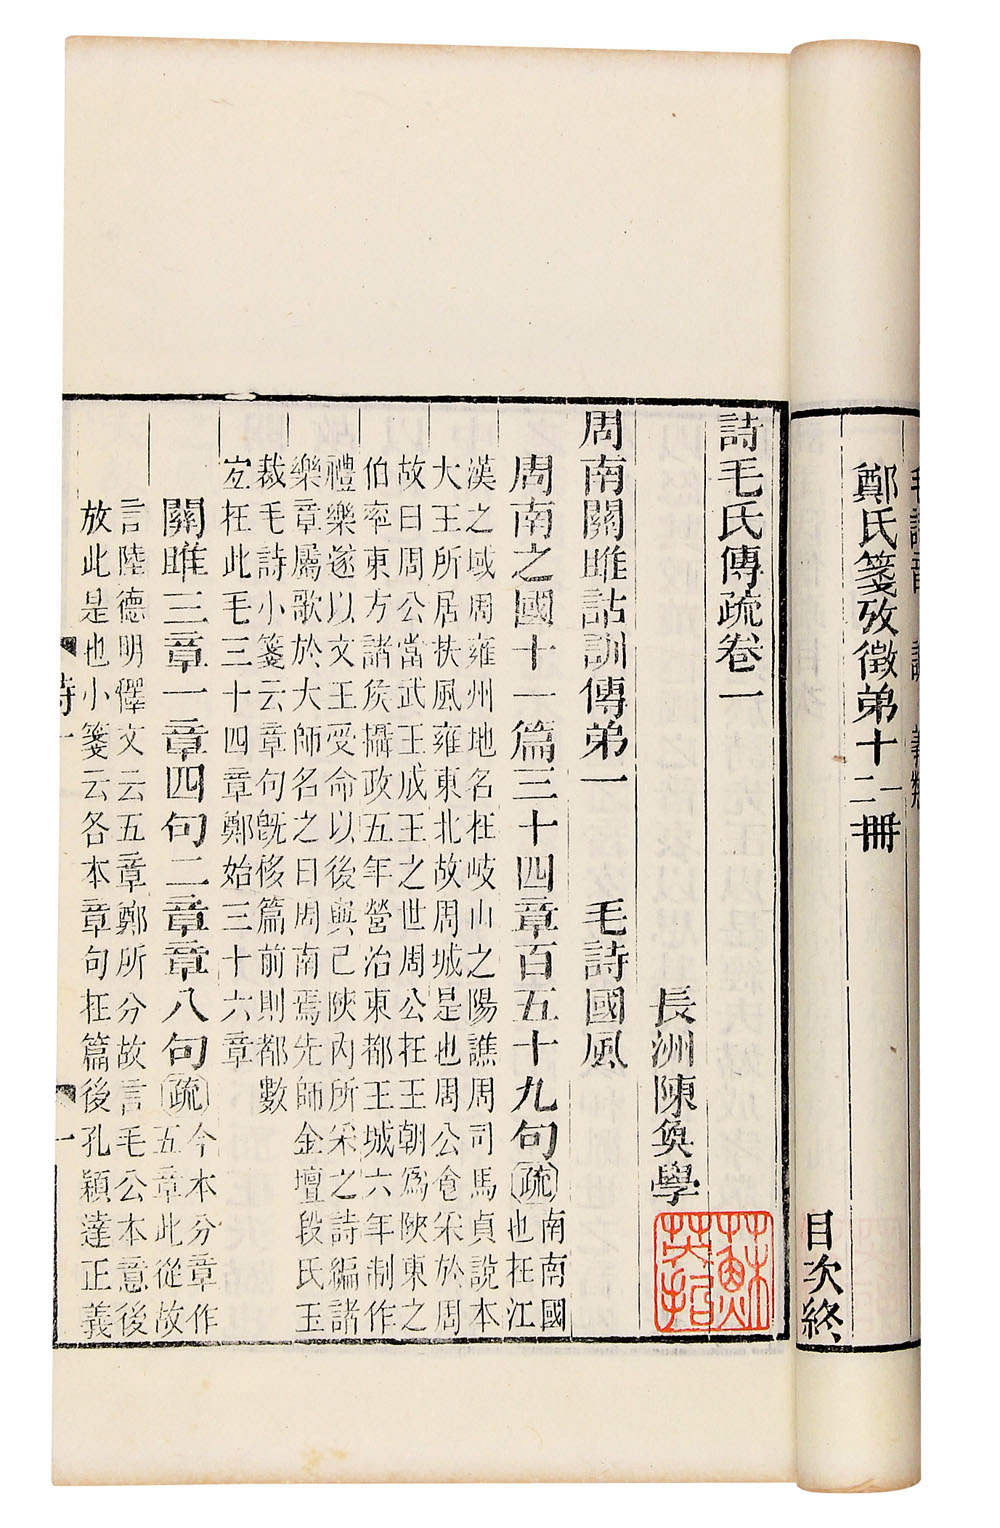 鄭氏箋攷徵弟十二冊
目次終
詩毛氏傳疏卷一
長洲陳奐學
周南關雎詁訓傳弟一　毛詩國風
周南之國十一篇三十四章百五十九句疏南南國
也在江
漢之域周雍州地名在岐山之陽譙周司馬貞說本
大王所居扶風雍東北故周城是也周公食采於周
故曰周公當武王成王之世周公在王朝爲陝東之
伯率東方諸侯攝政五年營治東都王城六年制作
禮樂遂以文王受命以後與己陝內所采之詩編諸
樂章屬歌於大師名之曰周南焉先師金壇段氏玉
裁毛詩小箋云章句旣移篇前則都數
宐在此毛三十四章鄭始三十六章
關雎三章一章四句二章章八句疏今本分章作
五章此從故
言陸德明釋文云五章鄭所分故言毛公本意後
放此是也小箋云各本章句在篇後孔穎達正義